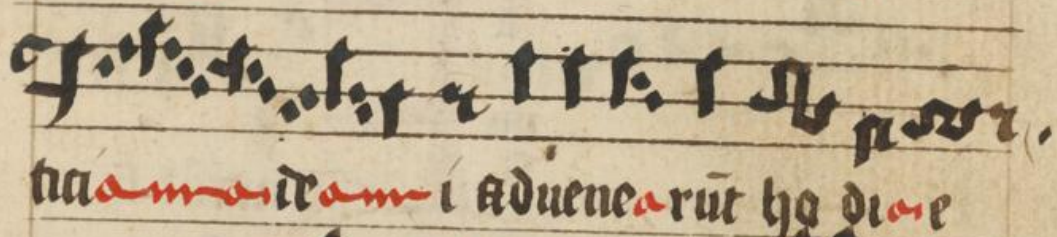 tici de i aduene rūt ho di e